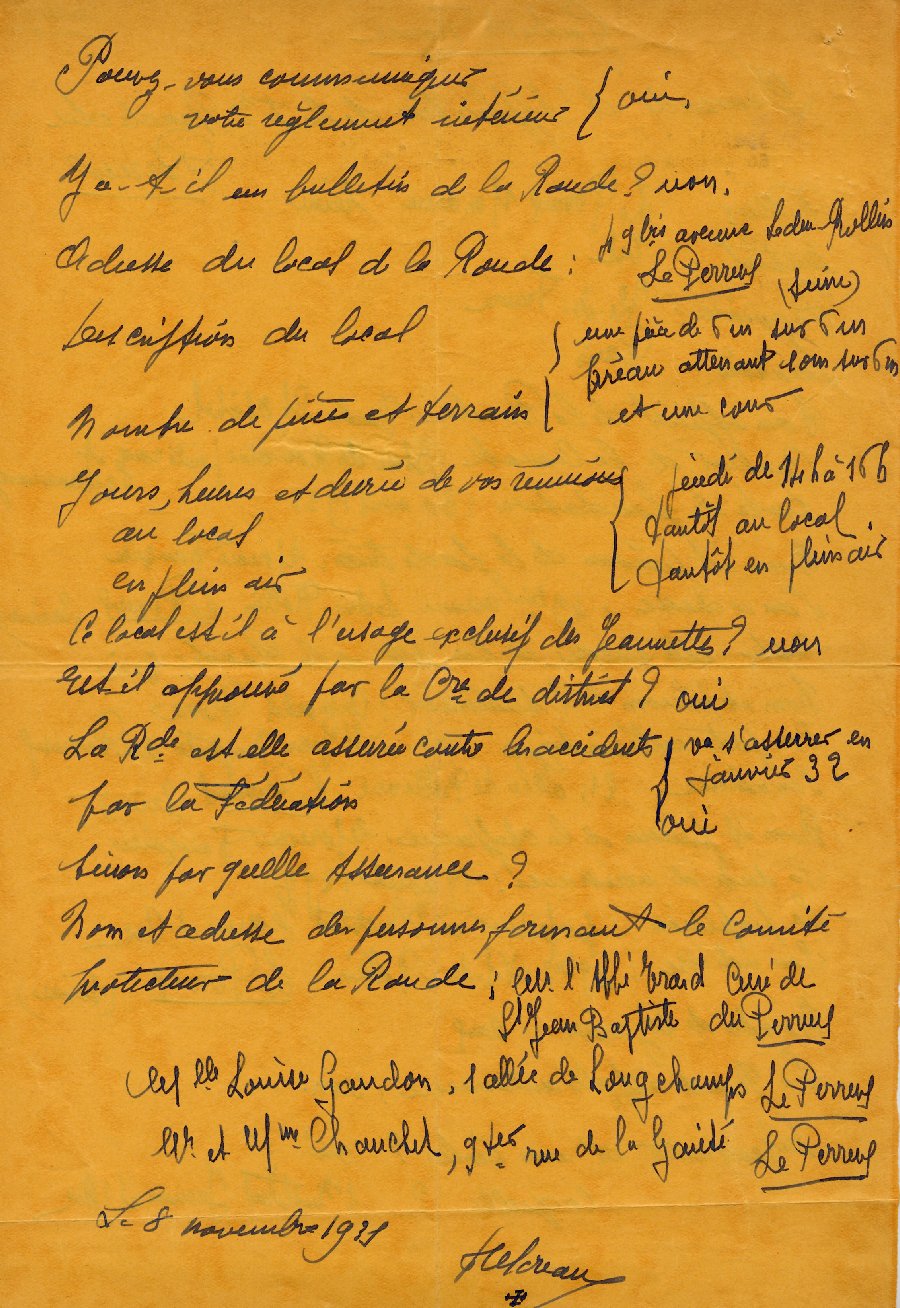 Pouvez-vous communiquer
votre règlement intérieur } oui
Y a-t-il un bulletin de la Ronde ? non.
Adresse du local de la Ronde : 49 bis avenue Ledru-Rollin
Le Perreux (Seine)
Description du local { une pièce de 6 m sur 6 m
préau attenant 10m sur 6m
Nombre de pièces et terrain et une cour
Jours, heures et durée de vos réunions { jeudi de 14h à 16h
au local tantôt au local.
en plein air tantôt en plein air
Ce local est-il à l'usage exclusif des Jeannettes ? non
Est-il approuvé par la Cre de district ? oui
La Rde est-elle assurée contre les accidents { va s'assurer en
janvier 32
par la Fédération oui
Sinon par quelle Assurance ?
Nom et adresse des personnes formant le Comité
protecteur de la Ronde : Mr l'Abbé Curé de
St Jean Baptiste du Perreux
Mlle Louise Gaudon, 1 allée de Longchamps Le Perreux
Mr et Mme Chauchet, 9 ter rue de la Gaieté Le Perreux
Le 8 novembre 1931